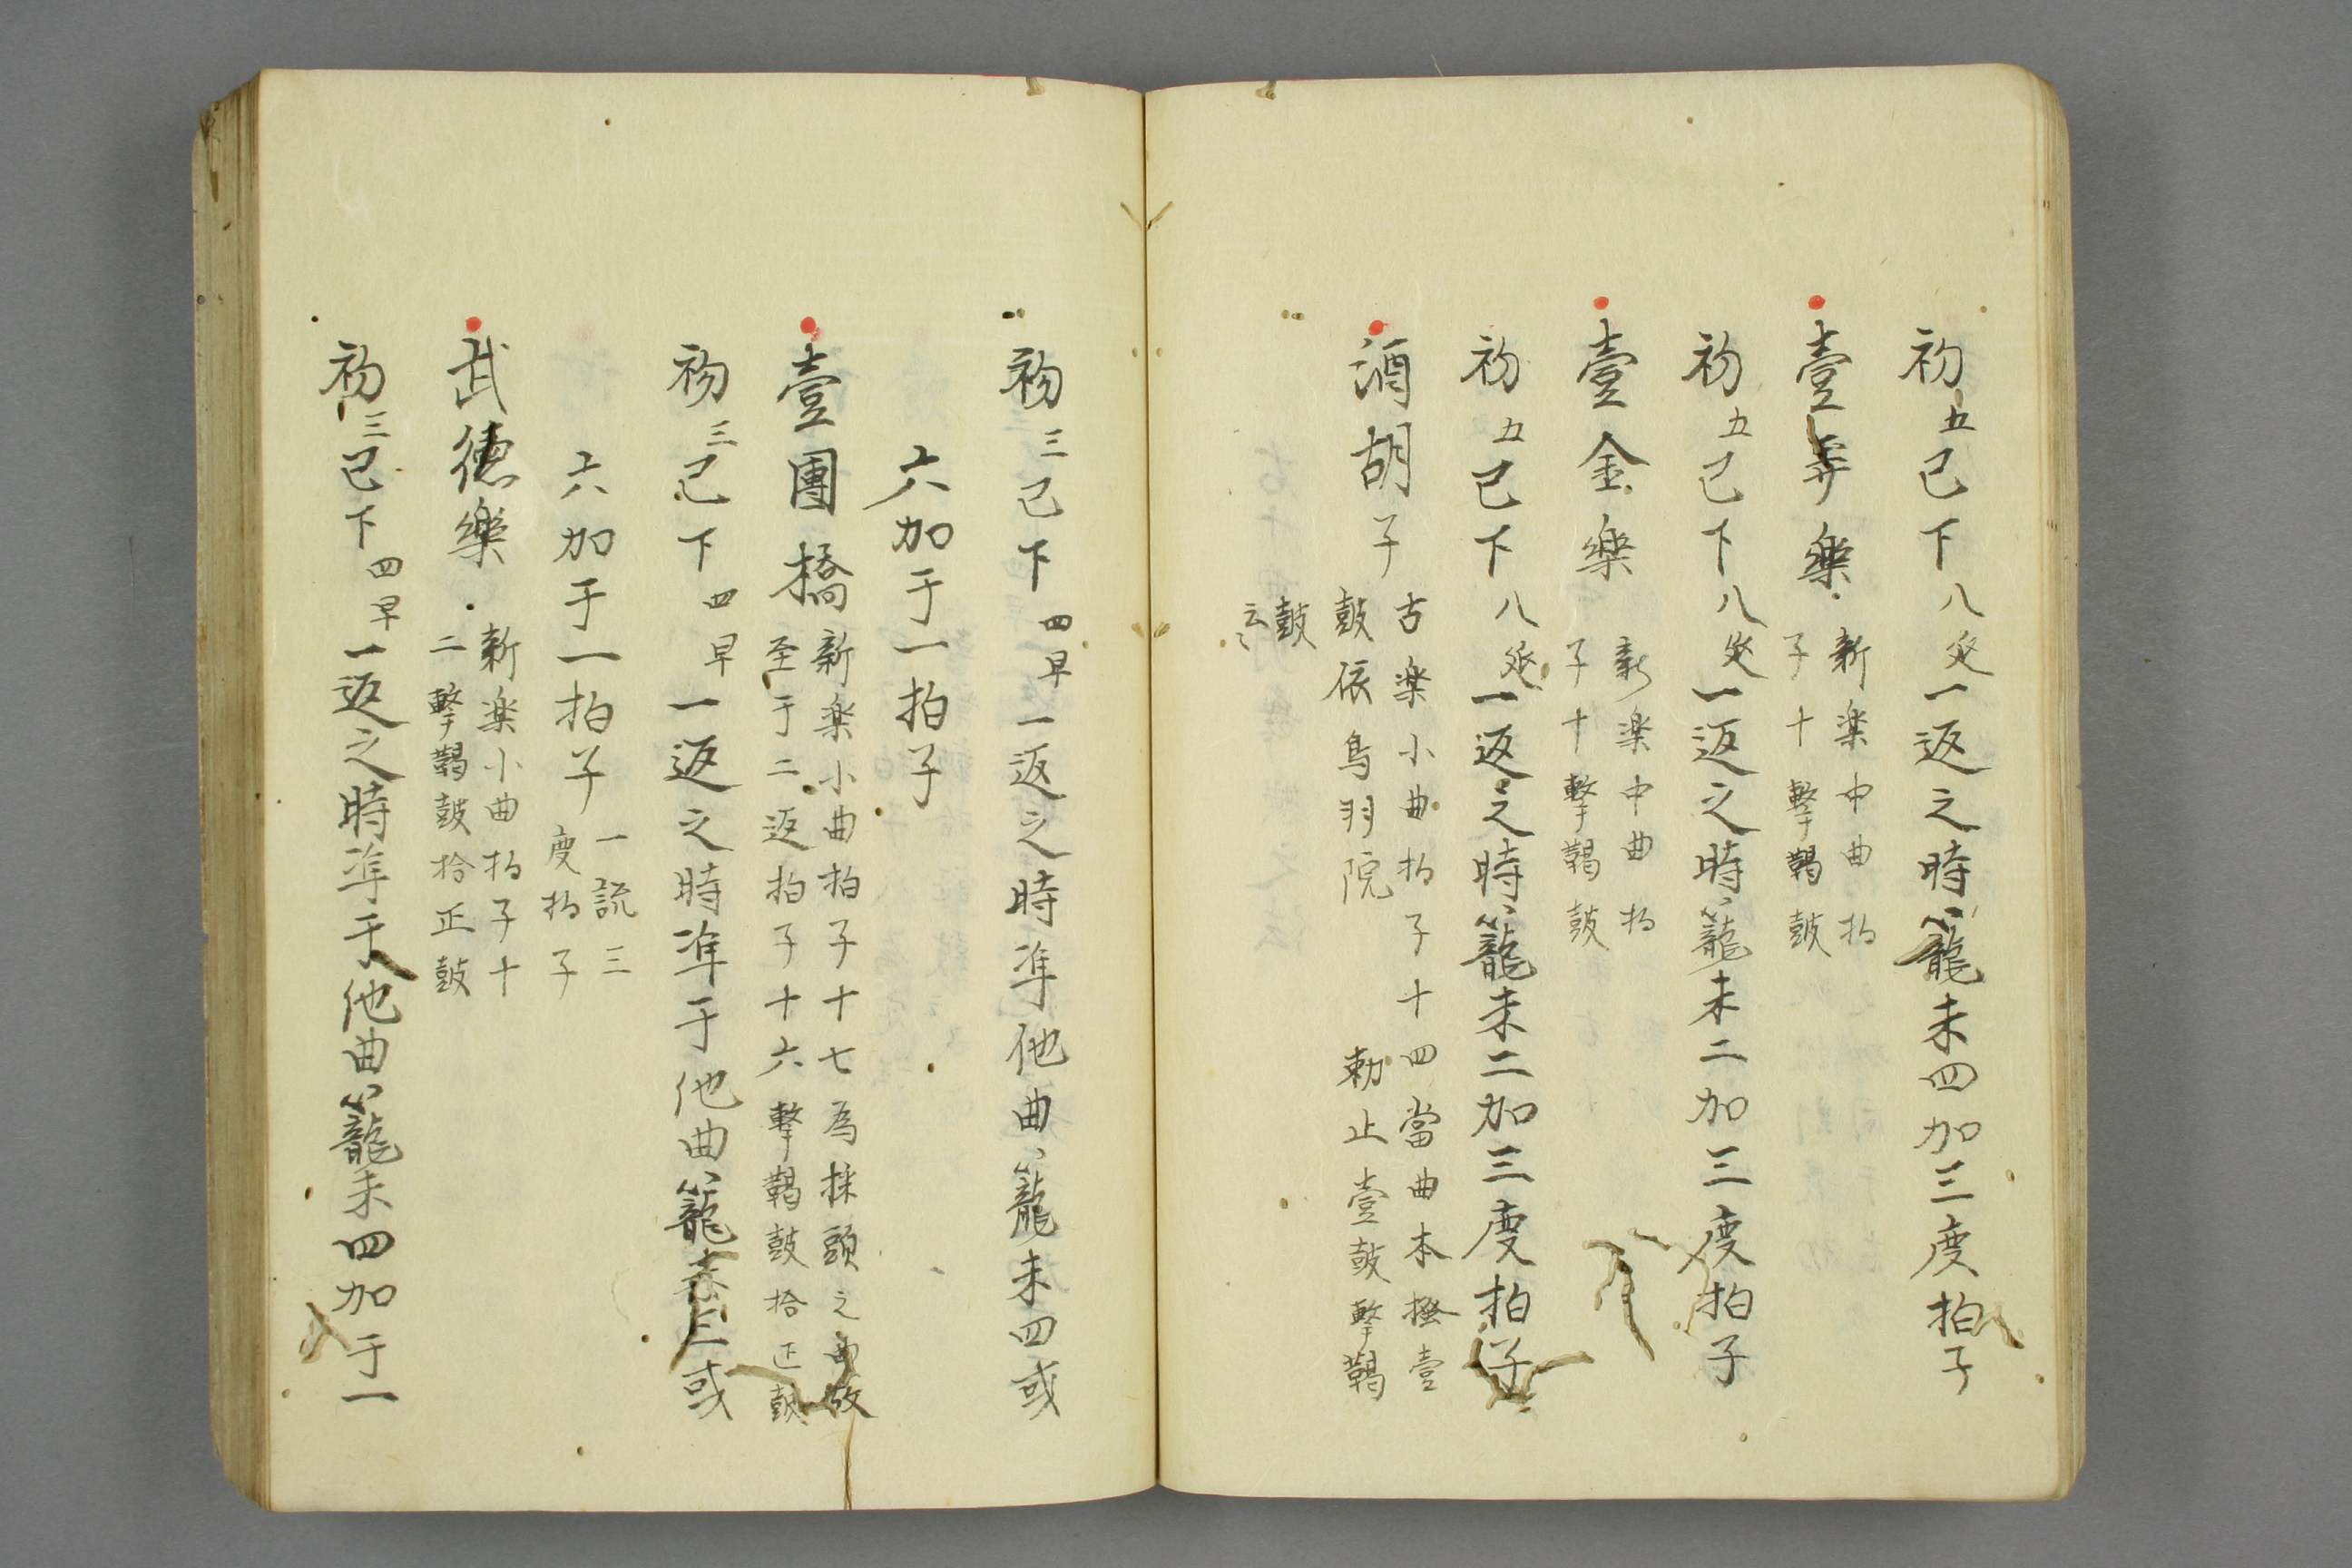 初五已下八延一返之時籠未四加三度拍子
壹弄樂新楽中曲拍
子十擊鞨鼓
初五已下八延一返之時籠未二加三度拍子
壹金楽新楽中曲拍
子十擊鞨鼓
初五已下八延一返之時籠未二加三度拍子
酒胡子古楽小曲拍子十四當曲本撥壹
鼓依鳥羽院 勅止壹鼓擊鞨
鼓
云〻
初三已下四早一返之時准他曲籠未四或
六加于一拍子
壹團橋新楽小曲拍子十七為採頭之曲故
至于二返拍子十六擊鞨鼓拾正鼓
初三已下四早一返之時准于他曲籠上或
六加于一拍子一説三
度拍子
武徳樂新楽小曲拍子十
二擊鞨鼓拾正鼓
初三已下四早一返之時准于他曲籠未四加于一